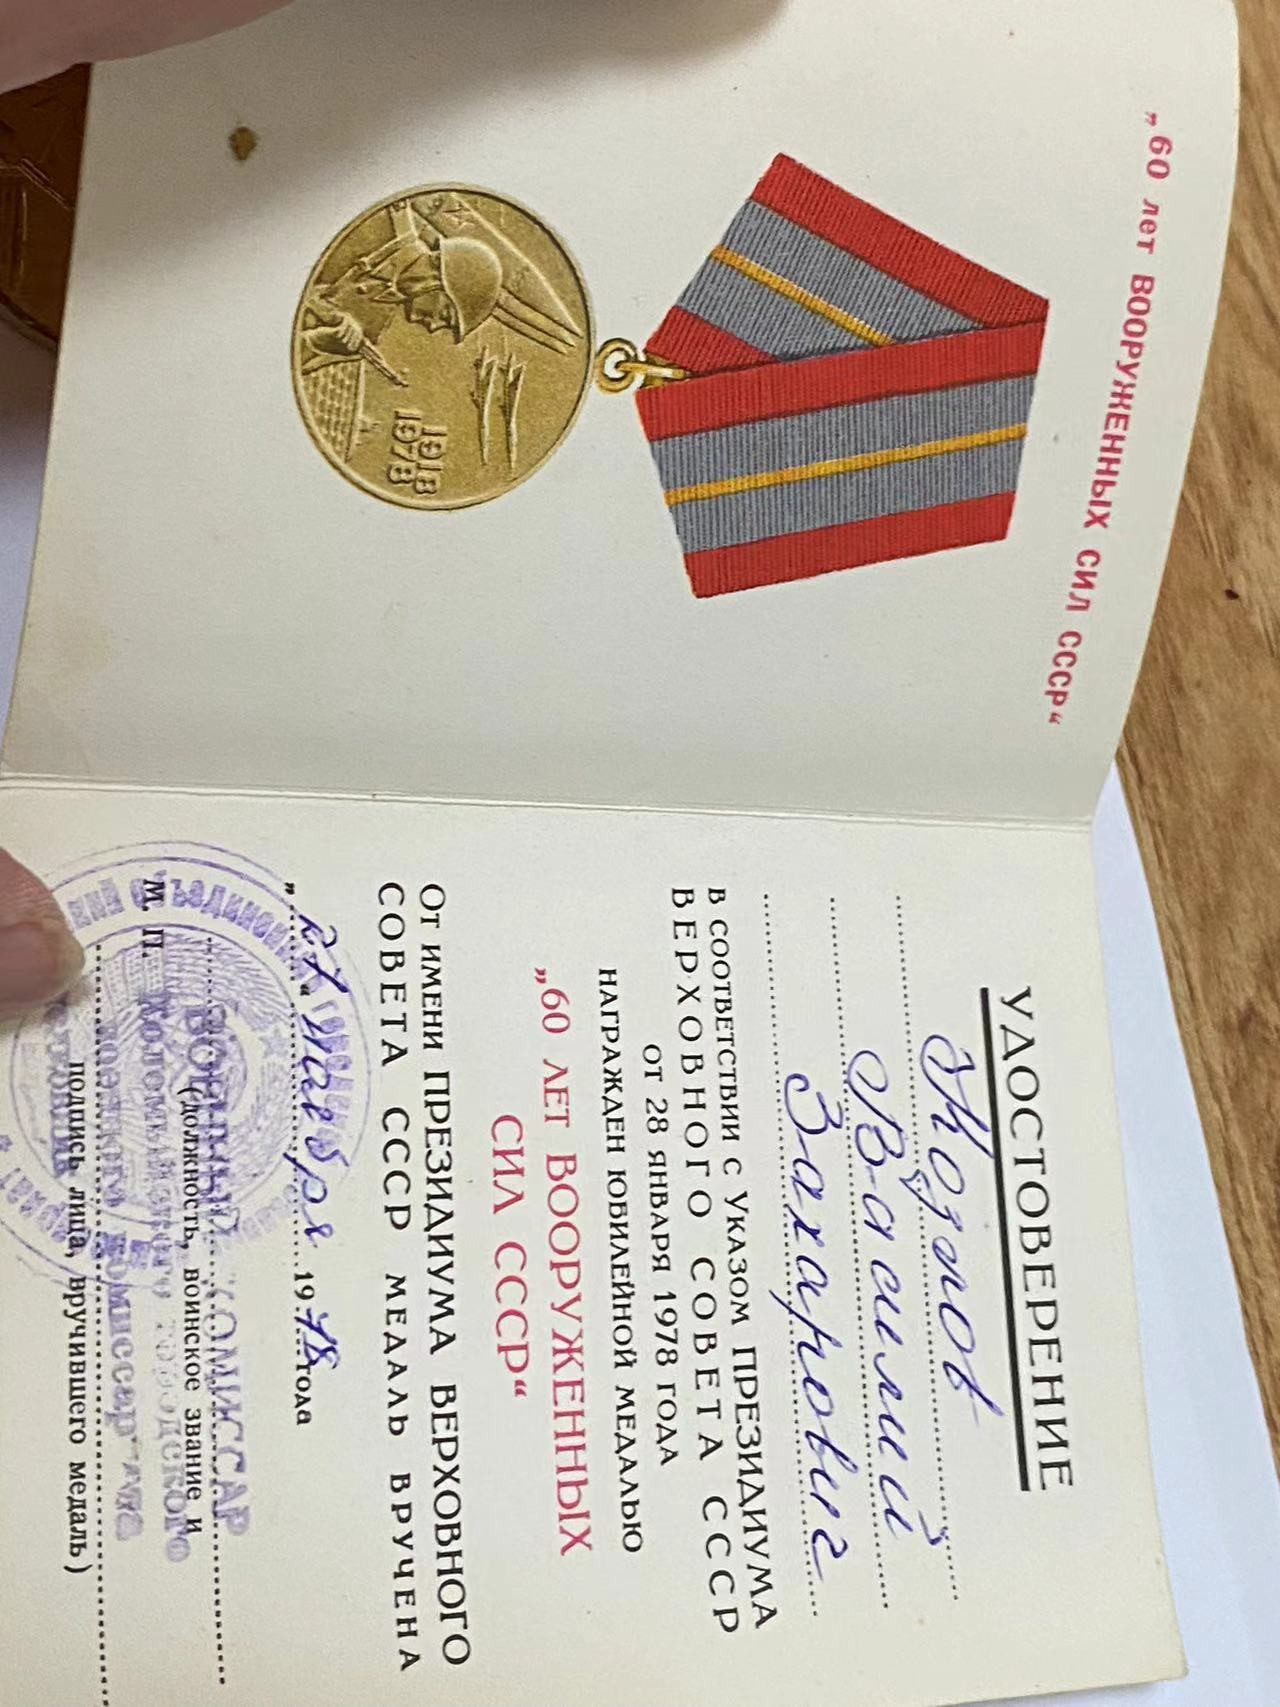 „60 лет ВООРУЖЕННЫХ СИЛ СССР“
1918
1978
УДОСТОВЕРЕНИЕ
Василий
Захарович
В СООТВЕТСТВИИ С УКАЗОМ ПРЕЗИДИУМА
ВЕРХОВНОГО СОВЕТА СССР
ОТ 28 ЯНВАРЯ 1978 ГОДА
НАГРАЖДЕН ЮБИЛЕЙНОЙ МЕДАЛЬЮ
„60 ЛЕТ ВООРУЖЕННЫХ
СИЛ СССР“
ОТ ИМЕНИ ПРЕЗИДИУМА ВЕРХОВНОГО
СОВЕТА СССР МЕДАЛЬ ВРУЧЕНА
„27“ ноября 1978 года
ВОЕННЫЙ КОМИССАР
М. П. (должность, воинское звание и
Коломыйского городского
военного комиссариата
подпись лица, вручившего медаль)